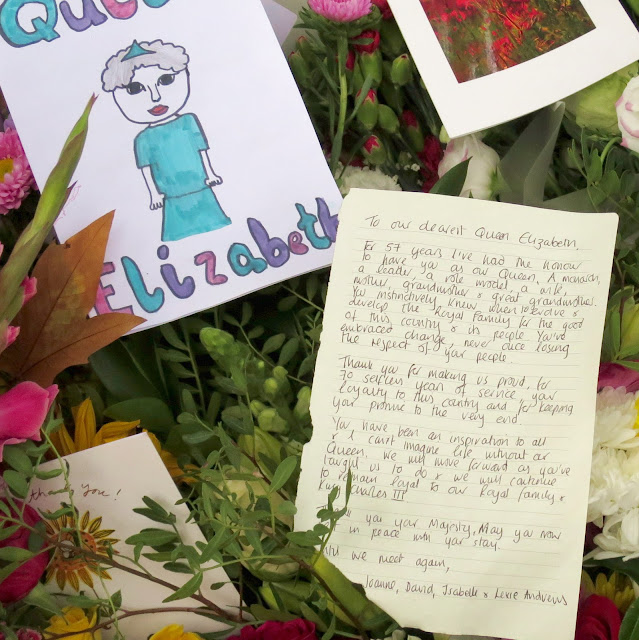 Que
Elizabeth
thank you!
To our dearest Queen Elizabeth,
For 57 years I've had the honour
to have you as our Queen, A monarch,
a leader, a role model, a wife,
mother, grandmother & great grandmother.
You instinctively knew when to evolve &
develop the Royal Family for the good
of this country & its people. You've
embraced change, never once losing
the respect of your people.
Thank you for making us proud, for
70 selfless years of service, your
loyalty to this country and for keeping
your promise to the very end.
You have been an inspiration to all
& I can't imagine life without our
Queen. We will move forward as you've
taught us to do & we will continue
to remain loyal to our Royal Family &
King Charles III
you your Majesty, May you now
in peace with your
we meet again,
Joanne, David, Isabelle & Lexie Andrews